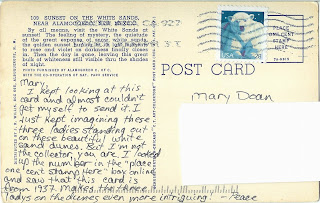 100 SUNSET ON THE WHITE SANDS,
NEAR ALAMOGORDO, NEW MEXICO
By all means, visit the White Sands at
sunset. The feeling of mystery, the quietude
of the great expanse of snow white sands,
the golden sunset
to rose and violet as darkness finally closes
in. Then the sky is gone, leaving this great
bulk of whiteness still visible thru the shades
of Night.
WITH THE CO-OPERATION OF NAT. PARK SERVICE
CA 927
PLACE
ONE CENT
STAMP
HERE
POST CARD
Mary,
I kept looking at this
card and almost couldn't
get myself to send it. I
just kept imagining these
three ladies standing out
on these beautiful white
sand dunes. But I'm not
the collector, you are. I looked
up the number in the "place
one cent stamp here" box online
and saw that this card is
from 1937. Makes the three
ladys on the dunes even more intriguing. -Peace
Mary Doan